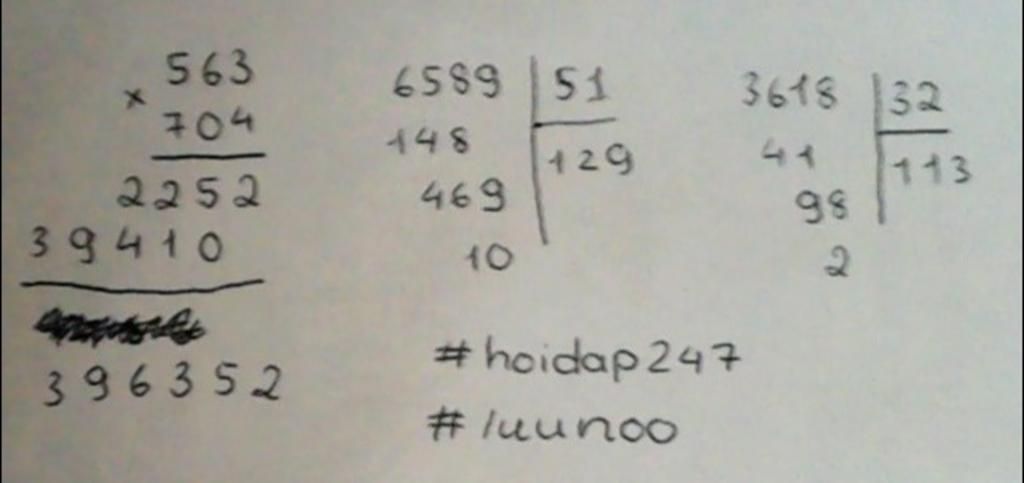 563
× 704
2252
39410
396352
6589 | 51
148 | 129
469
10
3618 | 32
41 | 113
98
2
#hoidap247
#luunoo